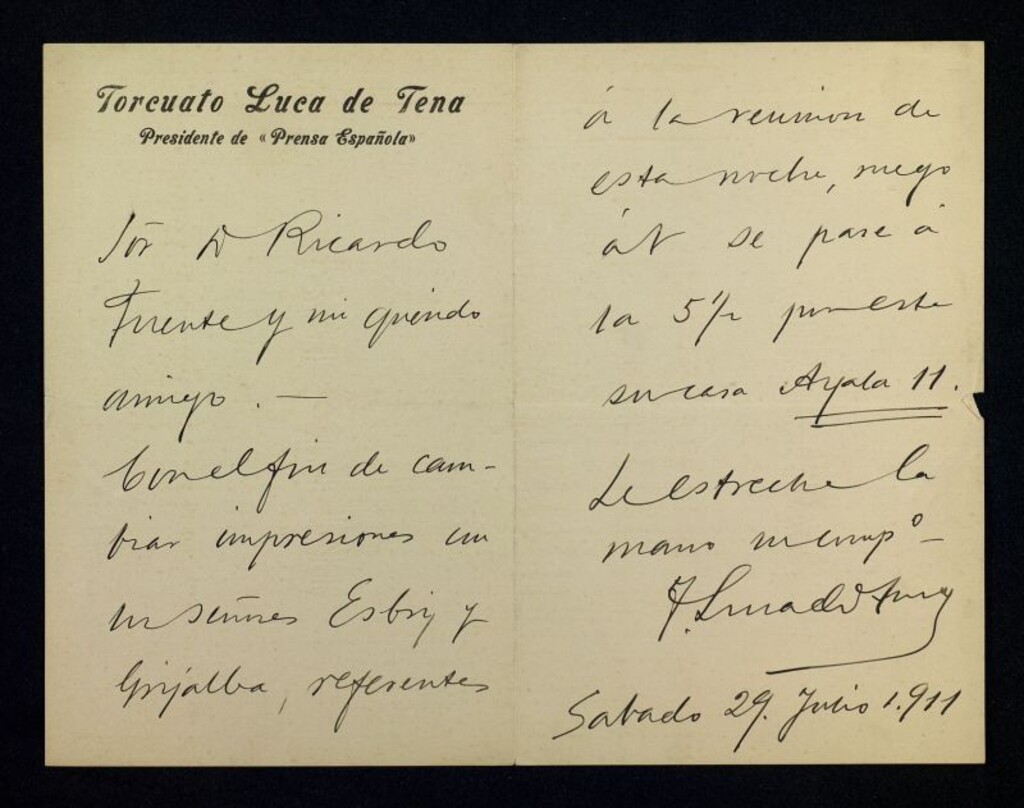 Torcuato Luca de Tena
Presidente de « Prensa Española»
Sõr D Ricardo
Fuente y mi querido
amigo. —
Con el fin de cam-
biar impresiones con
los señores Esbry y
Grijalba, referentes
á la reunion de
esta noche, ruego
á V se pase á
la 5 1/2 por esta
su casa Ayala 11.
Le estrecha la
mano su comp.º —
T. Luca de Tena
Sabado 29. Julio 1.911